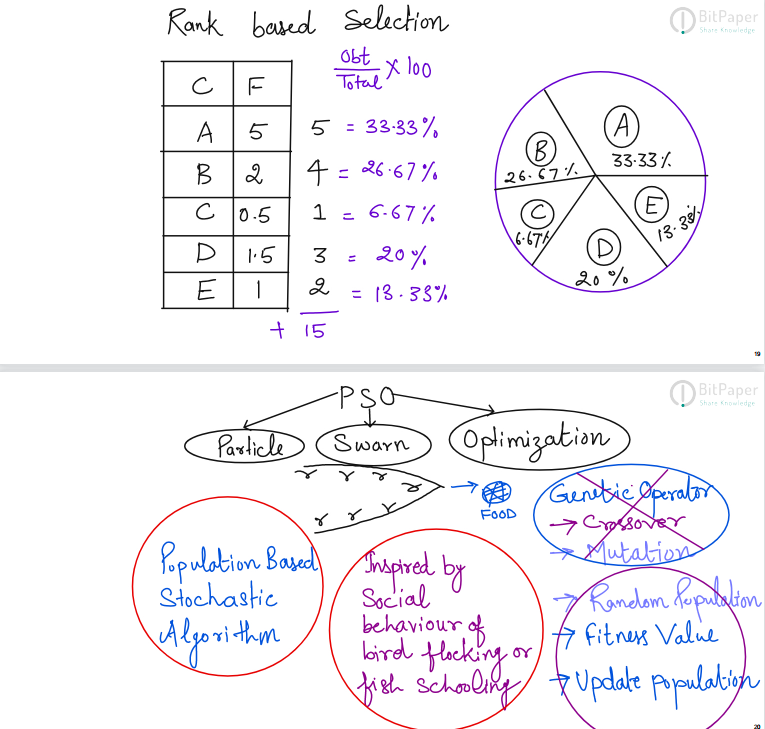 Rank based Selection
BitPaper
Share Knowledge
Obt
Total × 100
C F
A 5 5 = 33.33%
B 2 4 = 26.67%
C 0.5 1 = 6.67%
D 1.5 3 = 20%
E 1 2 = 13.33%
+ 15
A
33.33%
B
26.67%
C
6.67%
D
20%
E
13.33%
19
BitPaper
Share Knowledge
PSO
Particle Swarn Optimization
→ FOOD
Genetic Operator
→ Crossover
→ Mutation
Population Based
Stochastic
Algorithm
Inspired by
Social
behaviour of
bird flocking or
fish schooling
→ Random Population
→ Fitness Value
→ Update population
20